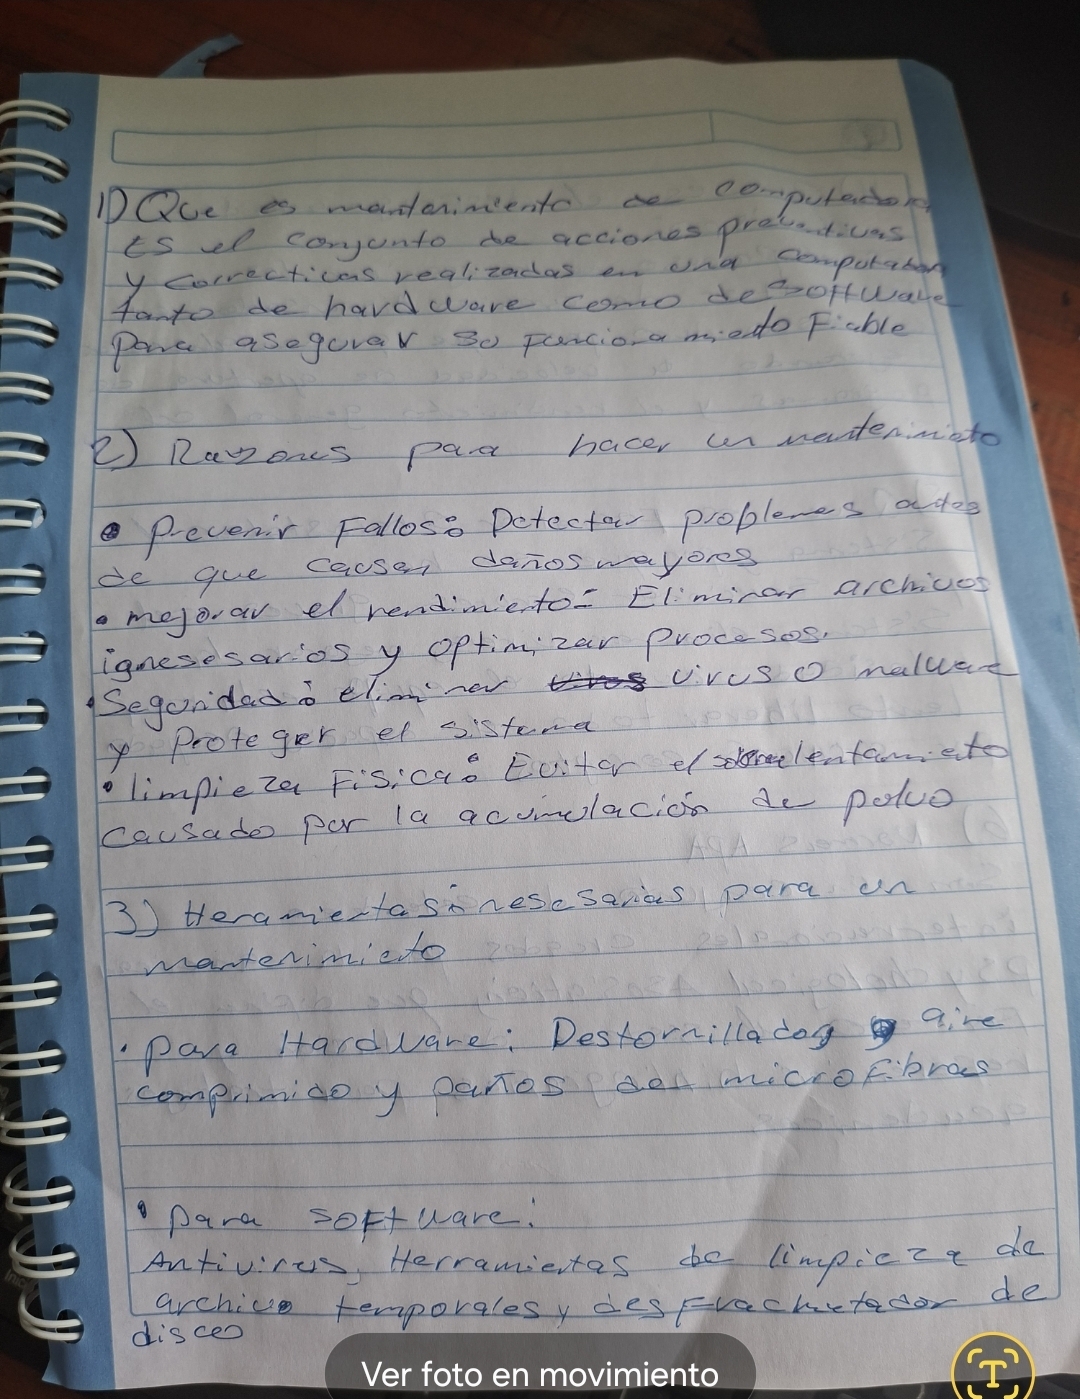 1) Que es mantenimiento de computadora
Es el conjunto de acciones preventivas
y correctivas realizadas en una computadora
tanto de hardware como de software
para asegurar su funcionamiento Fiable
2) Razones para hacer un mantenimieto
• Prevenir Fallos: Detectar problemas antes
de que causen daños mayores
• mejorar el rendimiento: Eliminar archivos
ignesesarios y optimizar procesos.
• Seguridad: eliminar virus o malware
y Proteger el sistema
• limpieza Fisica: Evitar el lentamieto
causado por la acumulación de polvo
3) Heramientas nesesarias para un
mantenimieto
• para Hardware: Destornillador aire
comprimido y paños de microfibras
• para software:
Antivirus, Herramientas de limpieza de
archivo temporales y desfrachetador de
disco
Ver foto en movimiento